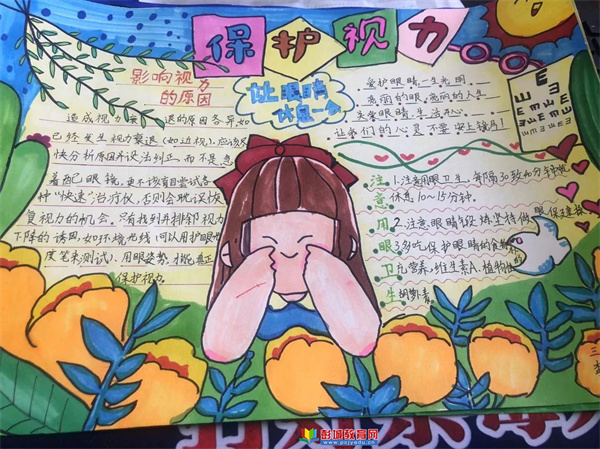 保护视力
影响视力
的原因
造成视力衰退的原因各异,如
已经发生视力衰退(如近视),应该尽
快分析原因并设法纠正,而不是急
着配眼镜,更不该盲目尝试各
种“快速”治疗仪,否则会耽误恢
复视力的机会,只有找到并排除视力
下降的诱因,如环境光线(可以用护眼
度笔来测试)、用眼姿势,才能真正
保护视力。
让眼睛
休息一会
爱护眼睛一生光明
亮丽的眼,亮丽的人生
关爱眼睛,生活开心
让我们的心灵不要安上镜片!
注意用眼卫生
1.注意用眼卫生,每隔30致40分钟就
休息10~15分钟。
2.注意眼睛锻炼坚持做眼保健操
3.多吃保护眼睛的食物
充营养,维生素A,植物性的
胡萝卜素。
三
彭湖教育网
www.pzjyedu.cn